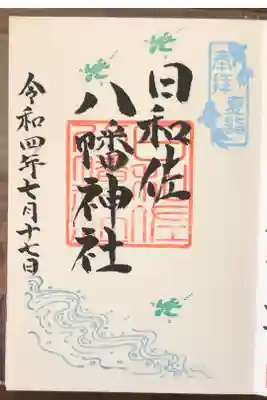 奉拝
日和佐
八幡神社
令和四年七月十七日